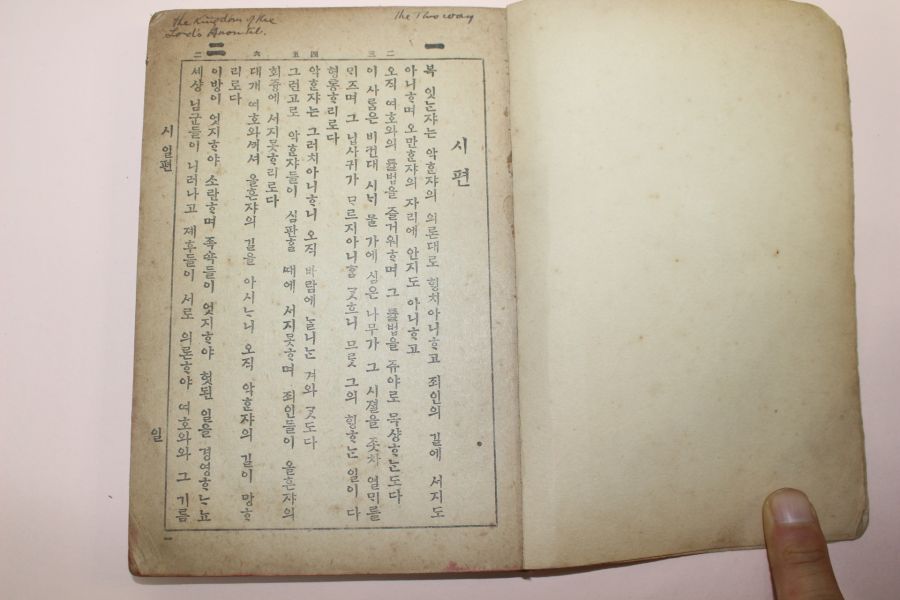 The Two way
The Kingdom of the
Lord's Anointed.
시편
一
복 잇ᄂᆞᆫ쟈는 악ᄒᆞᆫ쟈의 의론대로 ᄒᆡᆼ치아니ᄒᆞ고 죄인의 길에 서지도
아니ᄒᆞ며 오만ᄒᆞᆫ쟈의 자리에 안지도 아니ᄒᆞ고
二 오직 여호와의 률법을 즐거워ᄒᆞ며 그 률법을 쥬야로 묵샹ᄒᆞᄂᆞᆫ도다
三 이 사ᄅᆞᆷ은 비컨대 시ᄂᆡ 물 가에 심은 나무가 그 시졀을 좃차 열ᄆᆡ를
ᄆᆡ즈며 그 닙사귀가 ᄆᆞ르지아니ᄒᆞᆷ ᄀᆞᆺ흐니 므ᄅᆞᆺ 그의 ᄒᆡᆼᄒᆞᄂᆞᆫ 일이 다
형통ᄒᆞ리로다
四 악ᄒᆞᆫ쟈는 그러치아니ᄒᆞ니 오직 바람에 ᄂᆞᆯ니ᄂᆞᆫ 겨와 ᄀᆞᆺ도다
五 그런고로 악ᄒᆞᆫ쟈들이 심판ᄒᆞᆯ 때에 서지못ᄒᆞ며 죄인들이 올흔쟈의
회즁에 서지못ᄒᆞ리로다
六 대개 여호와ᄭᅦ셔 올흔쟈의 길을 아시ᄂᆞ니 오직 악ᄒᆞᆫ쟈의 길이 망ᄒᆞ
리로다
二
이방이 엇지ᄒᆞ야 소란ᄒᆞ며 족쇽들이 엇지ᄒᆞ야 헛된 일을 경영ᄒᆞᄂᆞ뇨
二 세샹 님군들이 니러나고 졔후들이 서로 의론ᄒᆞ야 여호와와 그 기름
시 일편
일
一